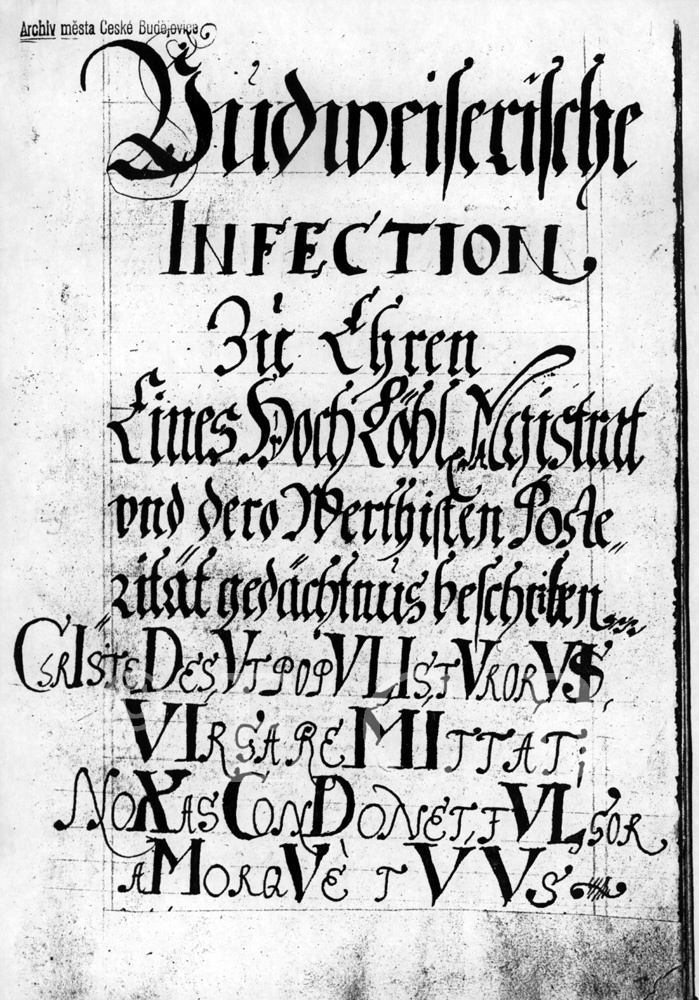 Archiv města České Budějovice
Budweiserische
INFECTION
Zu Ehren
Eines Hoch Löbl. Magistrat
vnd dero Werthisten Poste„
„rität gedächtnus beschriben
CHRISTE DES VT POPVLI STVRORVS
VIRGA REMITTAT;
NOXAS CONDONET, FVLSOR
AMORQVÈ TVVS